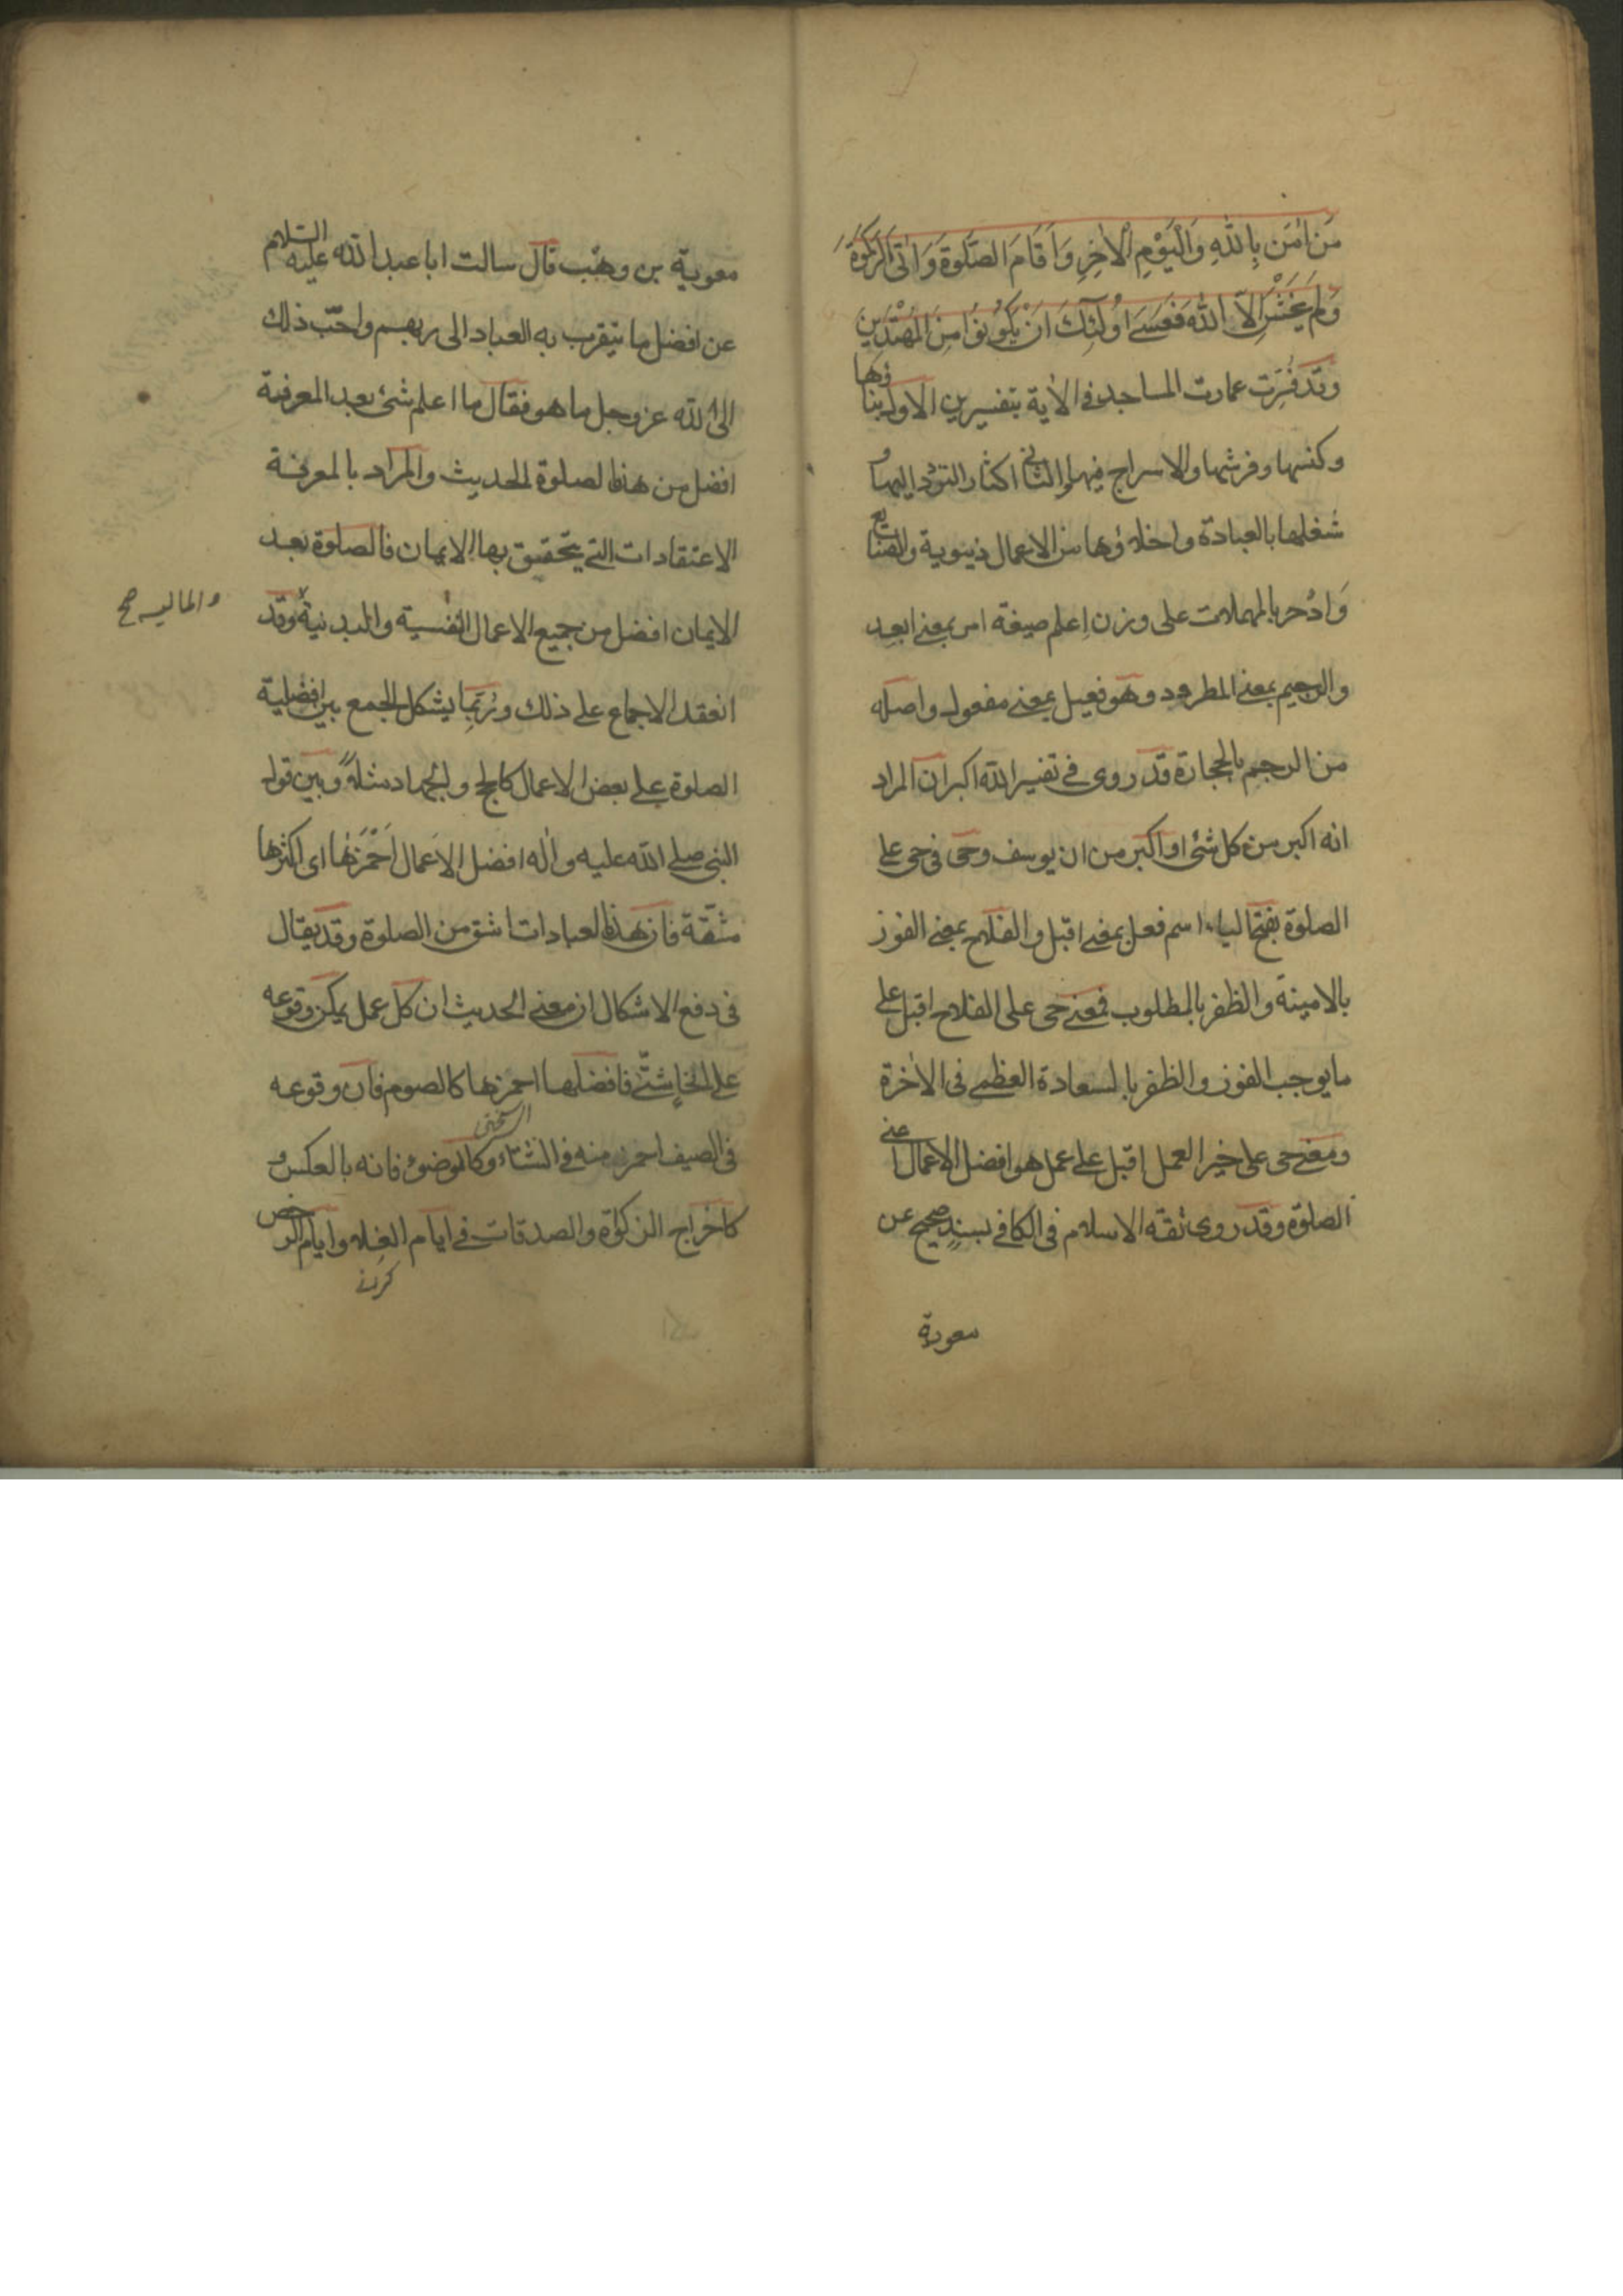 مَن اٰمَنَ بِاللّٰهِ وَالْيَوْمِ الْاٰخِرِ وَاَقَامَ الصَّلٰوةَ وَاٰتَى الزَّكٰوةَ
وَلَمْ يَخْشَ اِلَّا اللّٰهَ فَعَسٰى اُولٰئِكَ اَنْ يَكُونُوا مِنَ الْمُهْتَدِينَ
وقد فسرت عمارت المساجد فى الاٰية بتفسيرين الاول بناؤها
وكنسها وفرشها والاسراج فيها والثانى اكثار التردد اليها و
شغلها بالعبادة واخلاؤها من الاعمال دنيوية والصنايع
وَادْحر بالمهملات على وزن اِعلم صيغة امر بمعنى ابعد
والرجيم بمعنى المطرود وهو فعيل بمعنى مفعول واصله
من الرجم بالحجارة قد روى فى تفسير الله اكبر ان المراد
انه اكبر من كل شئ او اكبر من ان يوسف وحى فى حى على
الصلوة بفتح الياء اسم فعل بمعنى اقبل والفلاح بمعنى الفوز
بالامينة والظفر بالمطلوب فمعنى حى على الفلاح اقبل على
ما يوجب الفوز والظفر بالسعادة العظمى فى الاٰخرة
ومعنى حى على خير العمل اقبل على عمل هو افضل الاعمال اعنى
الصلوة وقد روى ثقه الاسلام فى الكافى بسندٍ صحيح عن
معوية
معوية بن وهب قال سالت ابا عبد الله عليه السلام
عن افضل ما يتقرب به العباد الى ربهم واحبّ ذلك
الى الله عز وجل ما هو فقال ما اعلم شئ بعد المعرفة
افضل من هذه الصلوة الحديث والمراد بالمعرفة
الاعتقادات التى يتحقق بها الايمان فالصلوة بعد
الايمان افضل من جميع الاعمال النفسية والبدنية وقد
والماليه صح
انعقد الاجماع على ذلك ورُبّما يشكل الجمع بين افضلية
الصلوة على بعض الاعمال كالحج والجهاد مثلاً وبين قول
النبى صلى الله عليه واٰله افضل الاعمال اَحْمَزها اى اكثرها
مشقّة فان هذه العبادات اشق من الصلوة وقد يقال
فى دفع الاشكال ان معنى الحديث ان كل عمل يمكن وقوعه
على انحاٍ شتّى فافضلها احمزها كالصوم فان وقوعه
فى الصيف احمز منه فى الشتاء وكالوضوء فانه بالعكس و
كاخراج الزكوة والصدقات فى ايام الغلا وايام الرخص